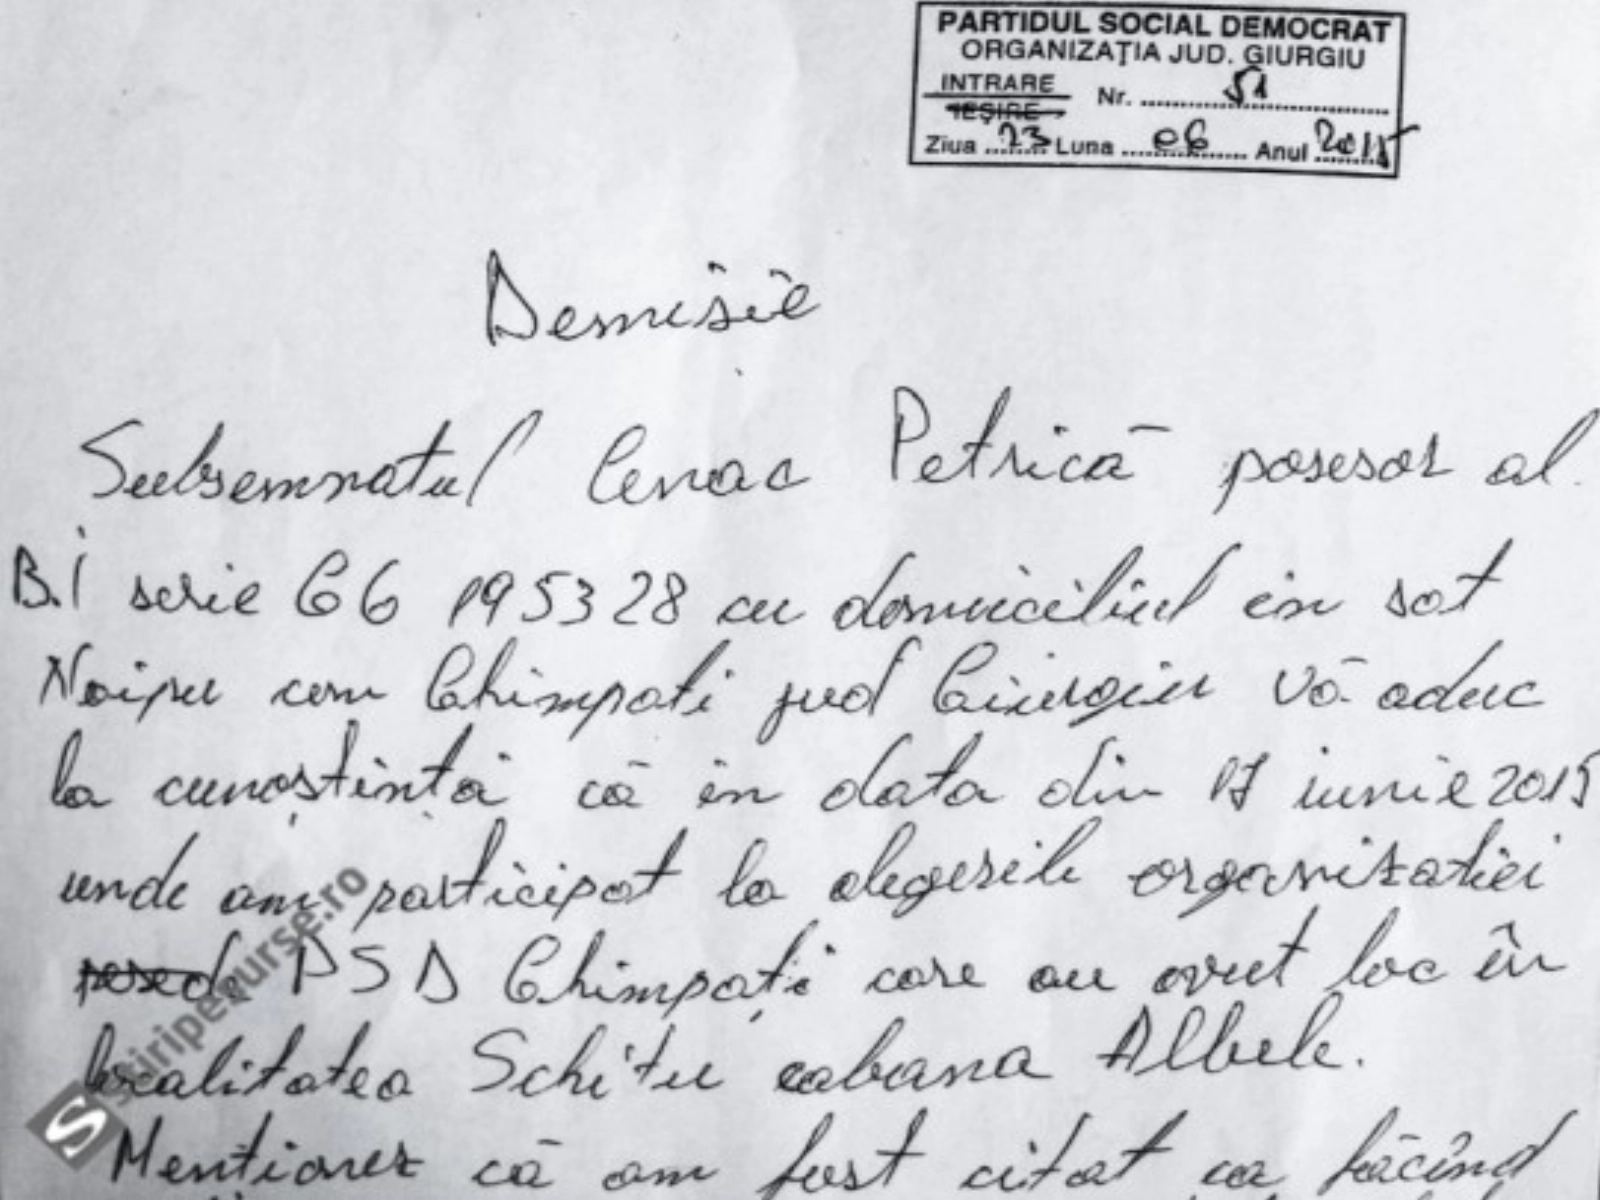 PARTIDUL SOCIAL DEMOCRAT
ORGANIZAŢIA JUD. GIURGIU
INTRARE
IEŞIRE
Nr. 51
Ziua 23 Luna 06 Anul 2015
Demisie
Subsemnatul Cenac Petrică posesor al
B.I serie GG 195328 cu domiciliul în sat
Naipu com Ghimpati jud Giurgiu Vă aduc
la cunoștință că în data din 17 iunie 2015
unde am participat la alegerile organizatiei
PSD Ghimpați care au avut loc în
localitatea Schitu cabana Albele.
Mentionez că am fost citat ca făcînd
stiripesurse.ro